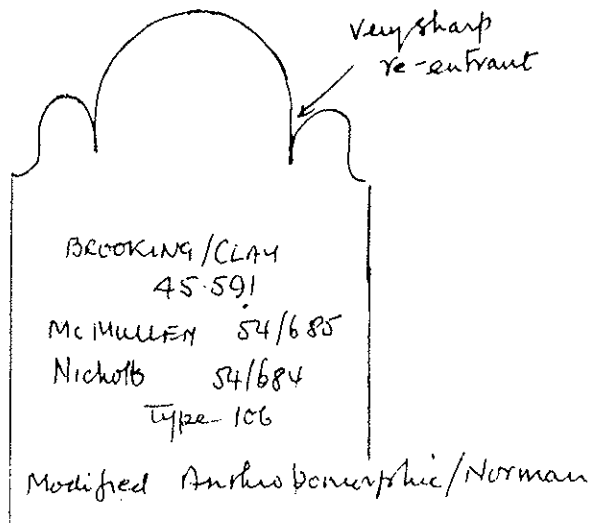 Very sharp
re-entrant
BROOKING/CLAY
45.591
McMULLEN 54/685
Nicholls 54/684
Type 106
Modified Anthropomorphic/Norman